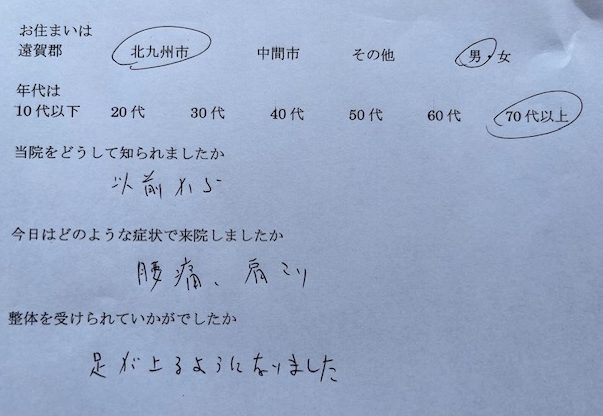 お住まいは
遠賀郡 北九州市 中間市 その他 男・女
年代は
10代以下 20代 30代 40代 50代 60代 70代以上
当院をどうして知られましたか
以前から
今日はどのような症状で来院しましたか
腰痛、肩こり
整体を受けられていかがでしたか
足が上るようになりました